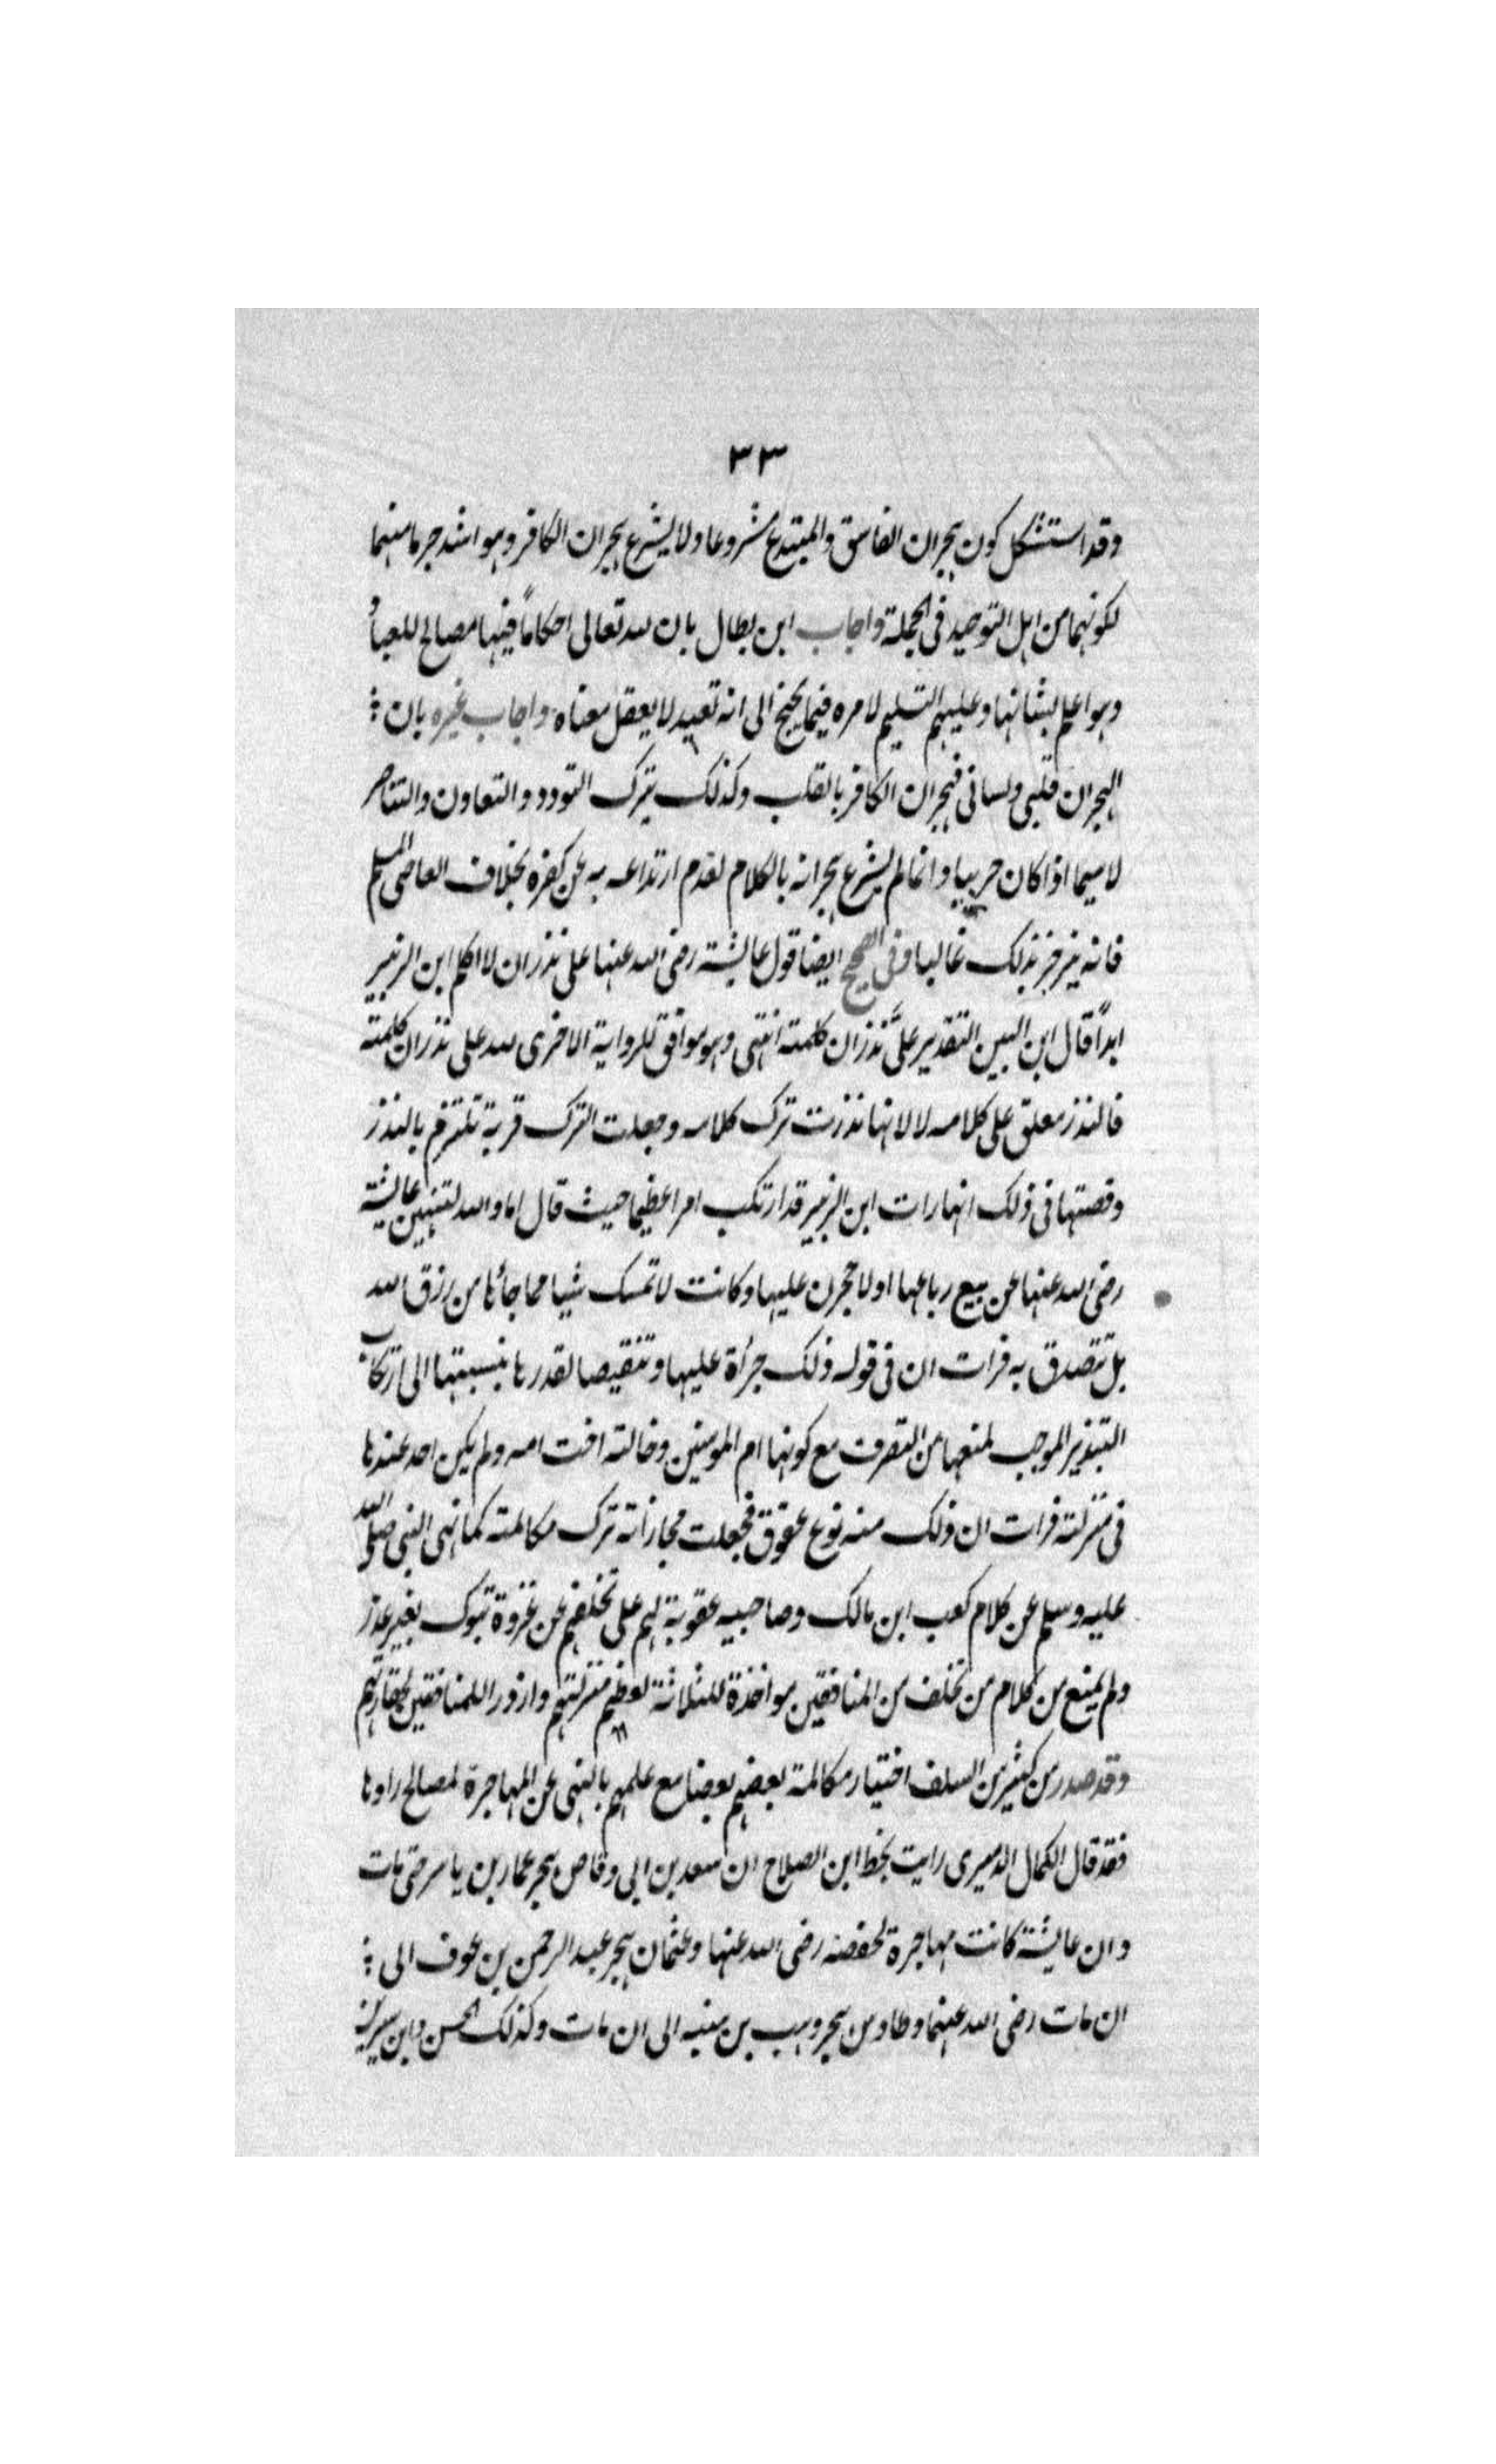 ٣٣
وقد استشكل كون هجران الفاسق والمبتدع مشروعا ولا يشرع هجران الكافر وهو اشد جرما منهما
لكونهما من اهل التوحيد فى الجملة واجاب ابن بطال بان لله تعالى احكاماً فيها مصالح للعباد
وهو اعلم بشانها وعليهم التسليم لامره فيها يجنح الى انه تعبد لا يعقل معناه واجاب غيره بان :
الهجران قلبى ولسانى فهجران الكافر بالقلب وكذلك بترك التودد والتعاون والتناصر
لا سيما اذا كان حربيا وانما لم يشرع هجرانه بالكلام لعدم ارتداعه به عن كفره بخلاف العاصى المسلم
فانه ينزجر بذلك غالبا وفى الصحيح ايضا قول عايشة رضى الله عنها على نذر ان لا اكلم ابن الزبير
ابداً قال ابن التين التقدير علىَّ نذر ان كلمته انتهى وهو موافق للرواية الاخرى لله على نذر ان كلمته
فالنذر معلق على كلامه لا لانها نذرت ترك كلامه وجعلت الترك قربة تلتزم بالنذر
وقصتها فى ذلك انها رات ابن الزبير قد ارتكب امرا عظيما حيث قال اما والله لتنتهين عايشة
رضى الله عنها عن بيع رباعها او لاحجرن عليها وكانت لا تمسك شيا مما جائها من رزق الله
بل تتصدق به فرات ان فى قوله ذلك جرأة عليها وتنقيصا لقدرها بنسبتها الى ارتكاب
التبذير الموجب لمنعها من التصرف مع كونها ام المومنين وخالته اخت امه ولم يكن احد عندها
فى منزلته فرات ان ذلك منه نوع عقوق فجعلت مجازاته ترك مكالمته كما نهى النبى صلى الله
عليه وسلم عن كلام كعب ابن مالك وصاحبيه عقوبة لهم على تخلفهم عن غزوة تبوك بغير عذر
ولم يمنع من كلام من تخلف من المنافقين مواخذة للثلاثة لعظيم منزلتهم وازورا للمنافقين لحقارتهم
وقد صدر من كثير من السلف اختيار مكالمة بعضهم بعضا مع علمهم بالنهى عن المهاجرة لمصالح راوها
فقد قال الكمال الدميرى رايت بخط ابن الصلاح ان سعد بن ابى وقاص هجر عمار بن ياسر حتى مات
وان عايشة كانت مهاجرة لحفصة رضى الله عنها وعثمان هجر عبد الرحمن بن عوف الى :
ان مات رضى الله عنهما وطاوس هجر وهب بن منبه الى ان مات وكذلك الحسن وابن سيرين